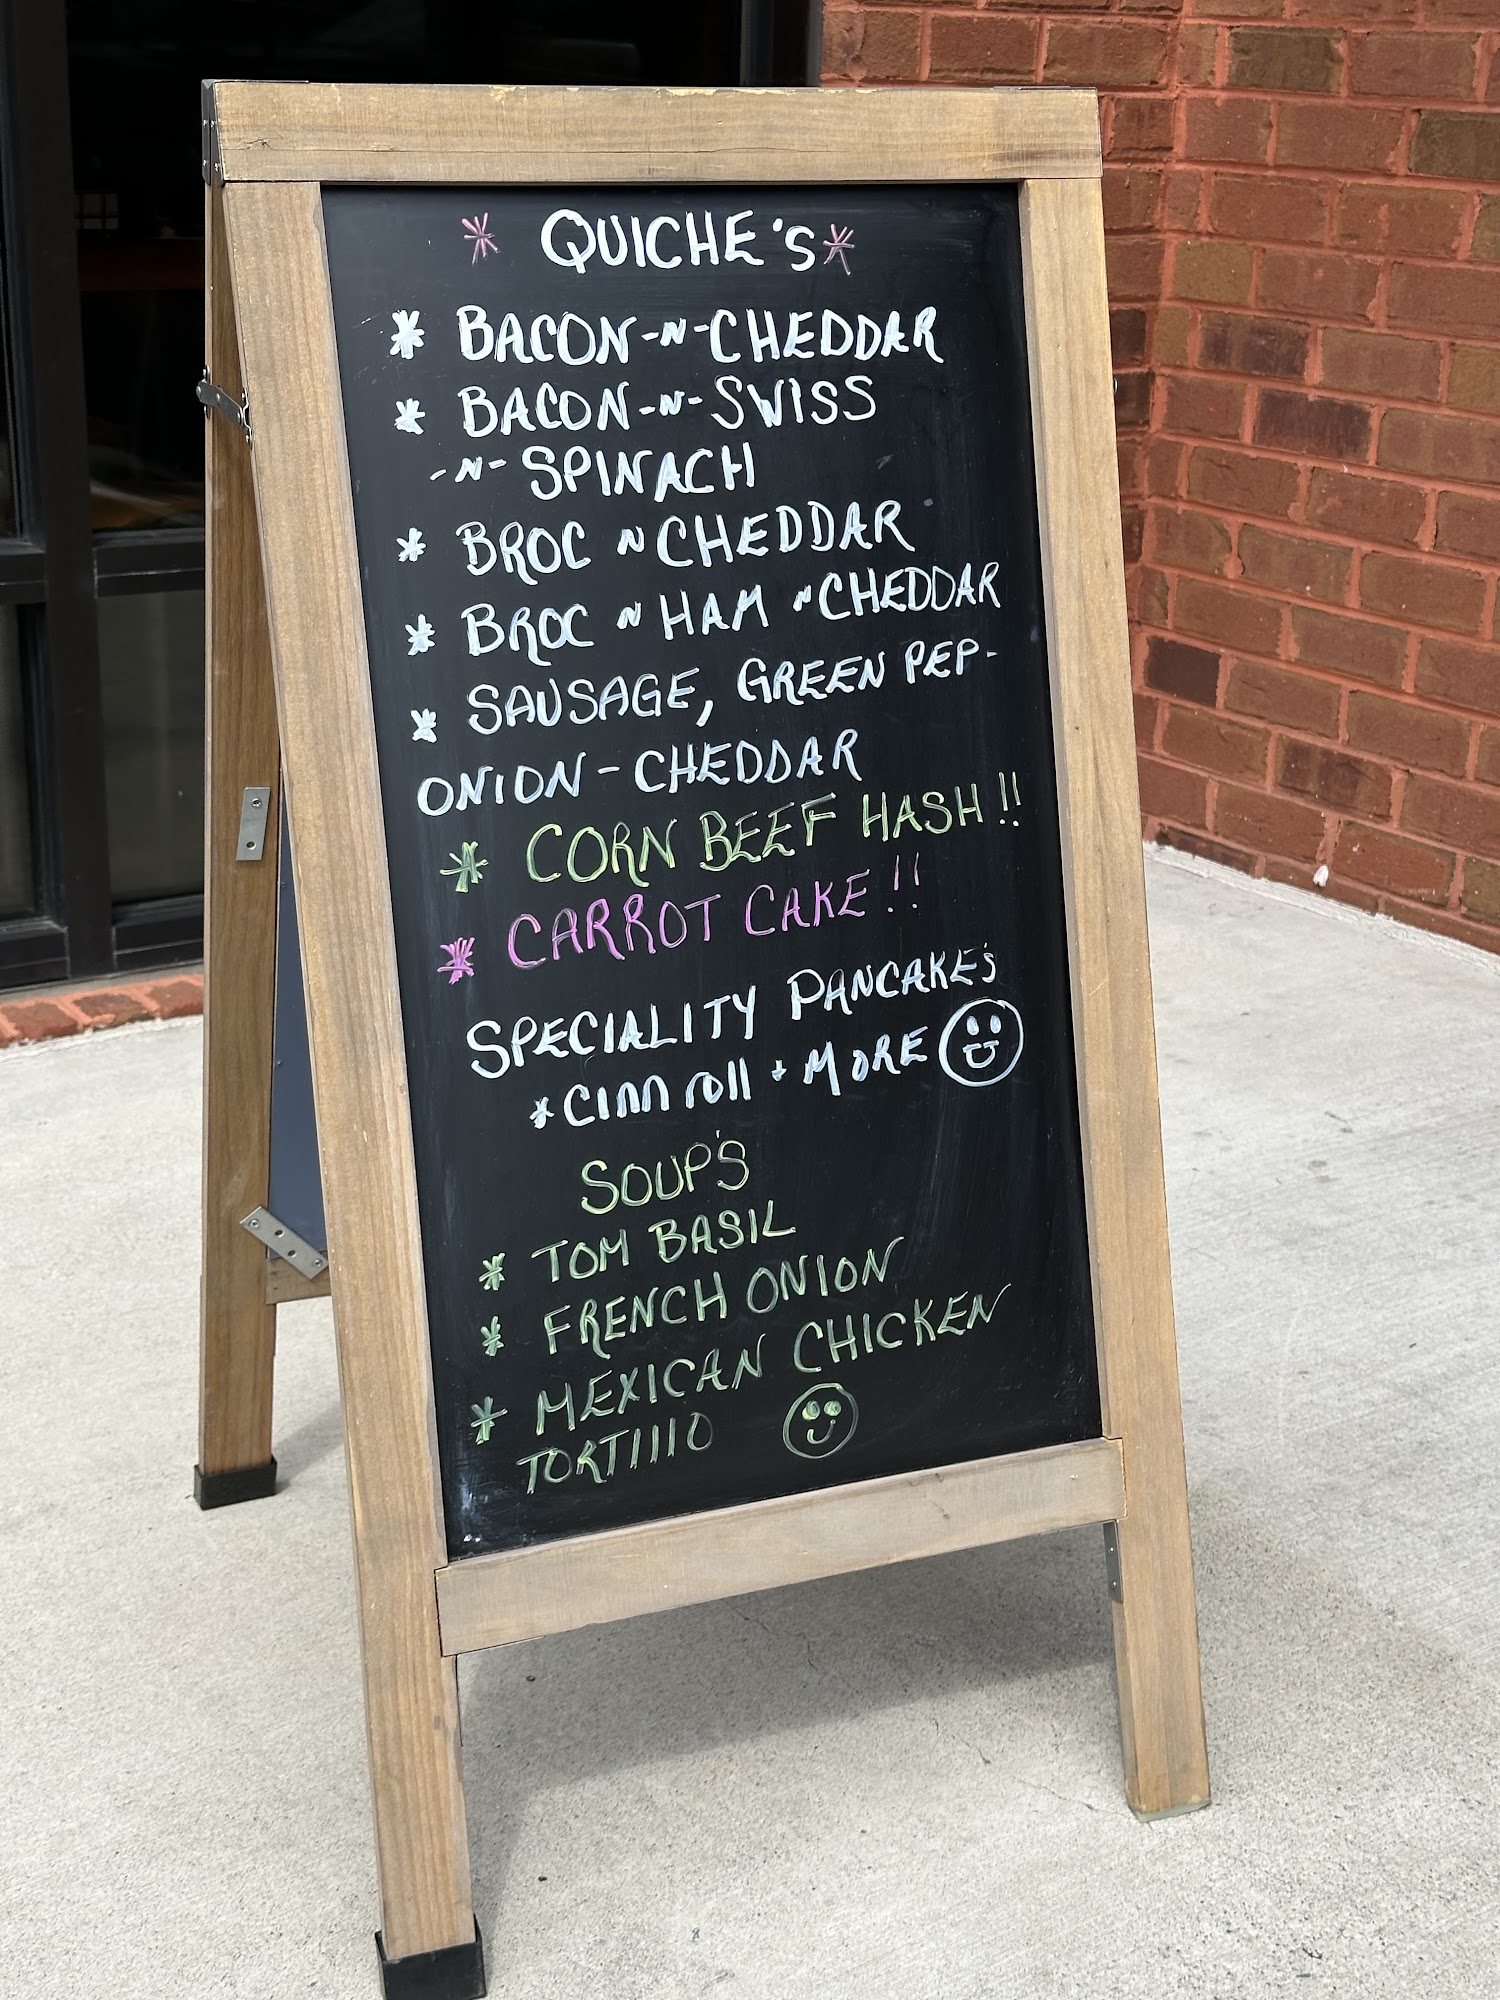 * QUICHE'S *
* BACON-N-CHEDDAR
* BACON-N-SWISS
-N- SPINACH
* BROC N CHEDDAR
* BROC N HAM N CHEDDAR
* SAUSAGE, GREEN PEP-
ONION - CHEDDAR
* CORN BEEF HASH!!
* CARROT CAKE!!
SPECIALITY PANCAKE'S
* Cinn roll + MORE
SOUP'S
* TOM BASIL
* FRENCH ONION
* MEXICAN CHICKEN
TORTIllO